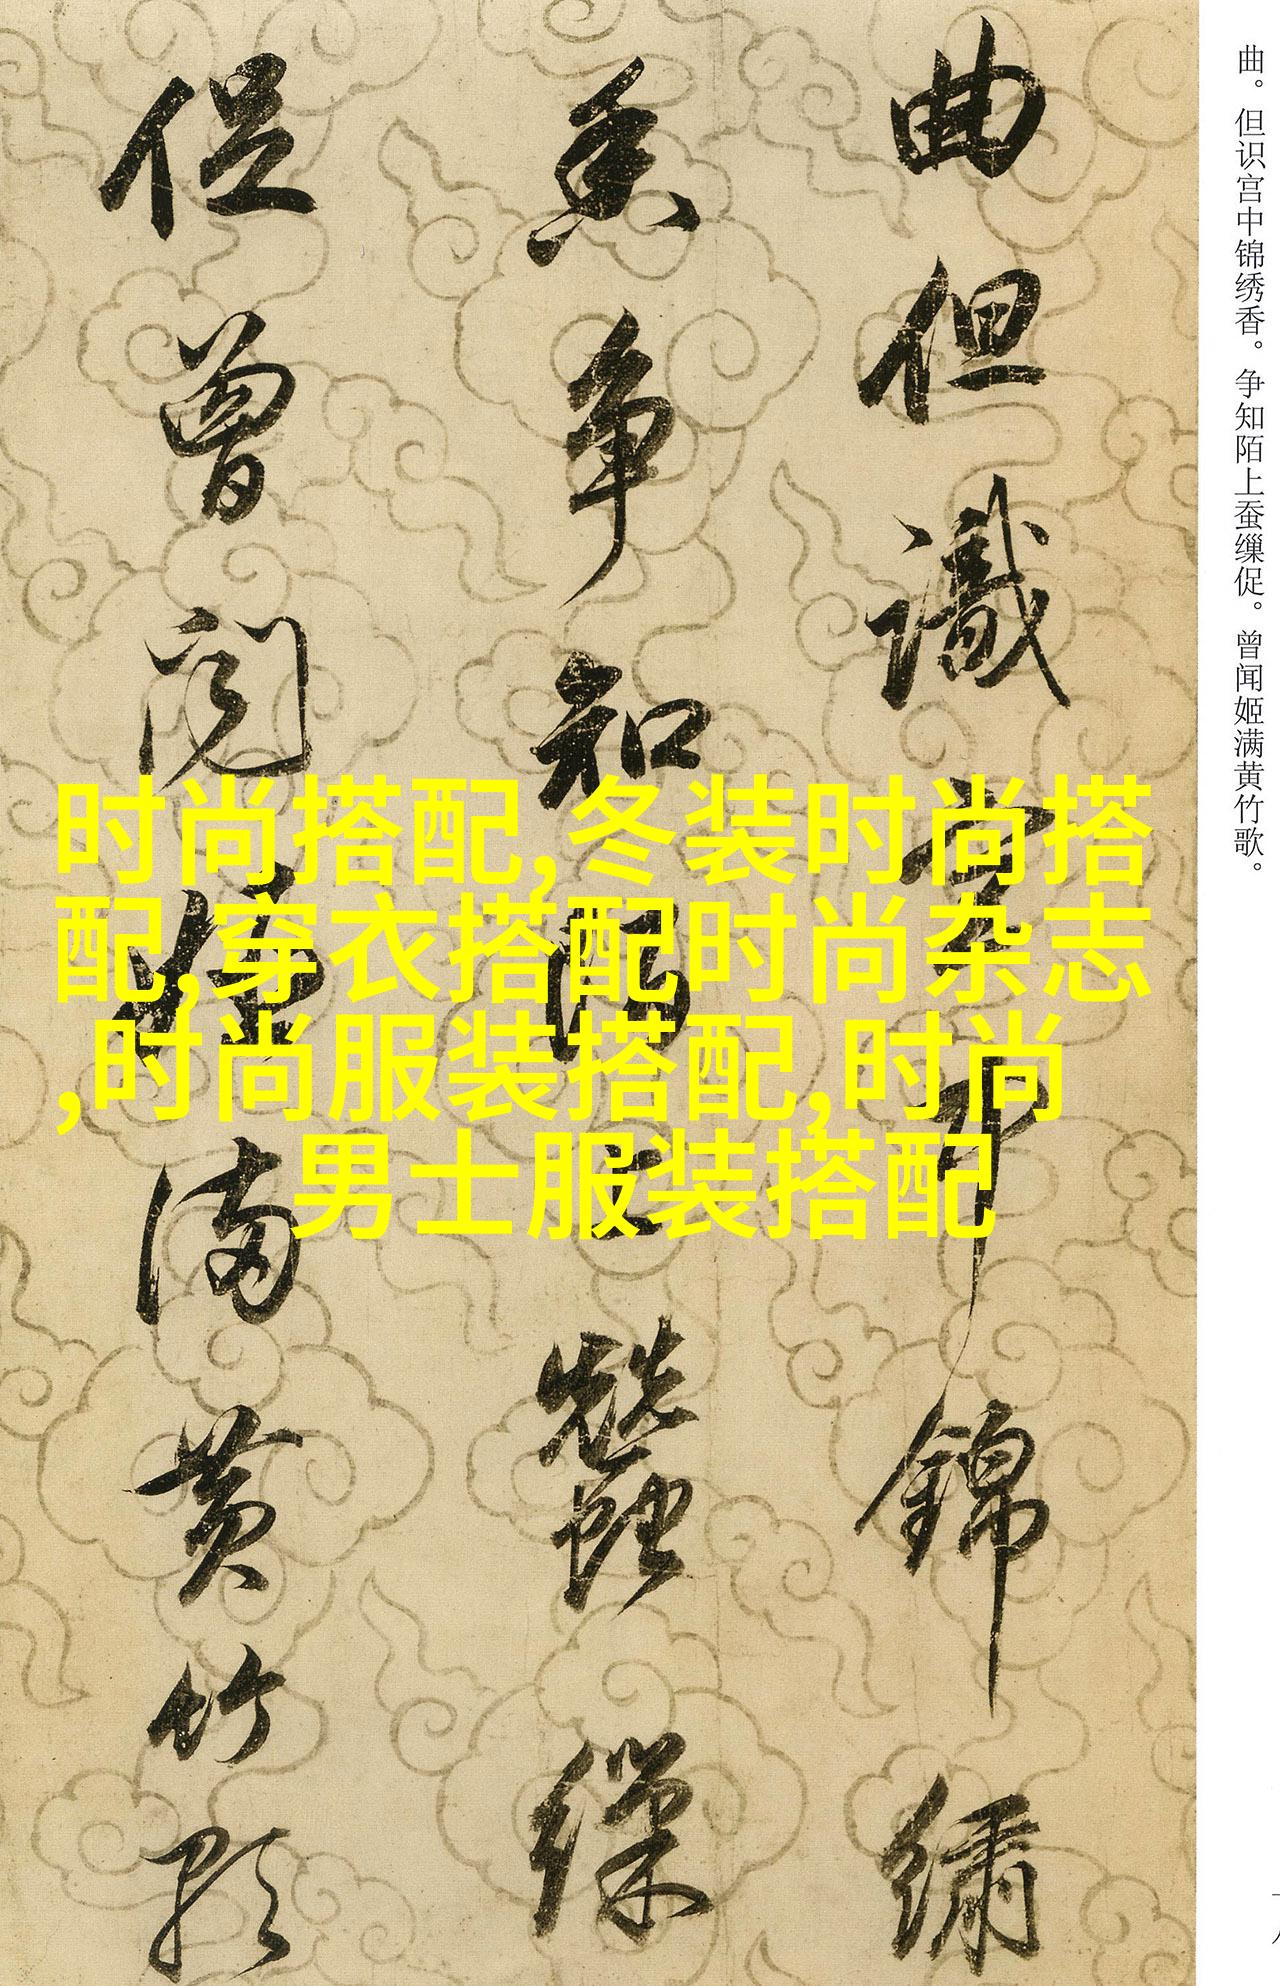 曲。但识宫中锦绣香。争知陌上蚕缫促。曾闻姬满黄竹歌。
曲但識宫中錦繡
香争知陌上蠶繅
促曾闻姬满黄竹歌
时尚搭配,冬装时尚搭
配,穿衣搭配时尚杂志
,时尚服装搭配,时尚
男士服装搭配